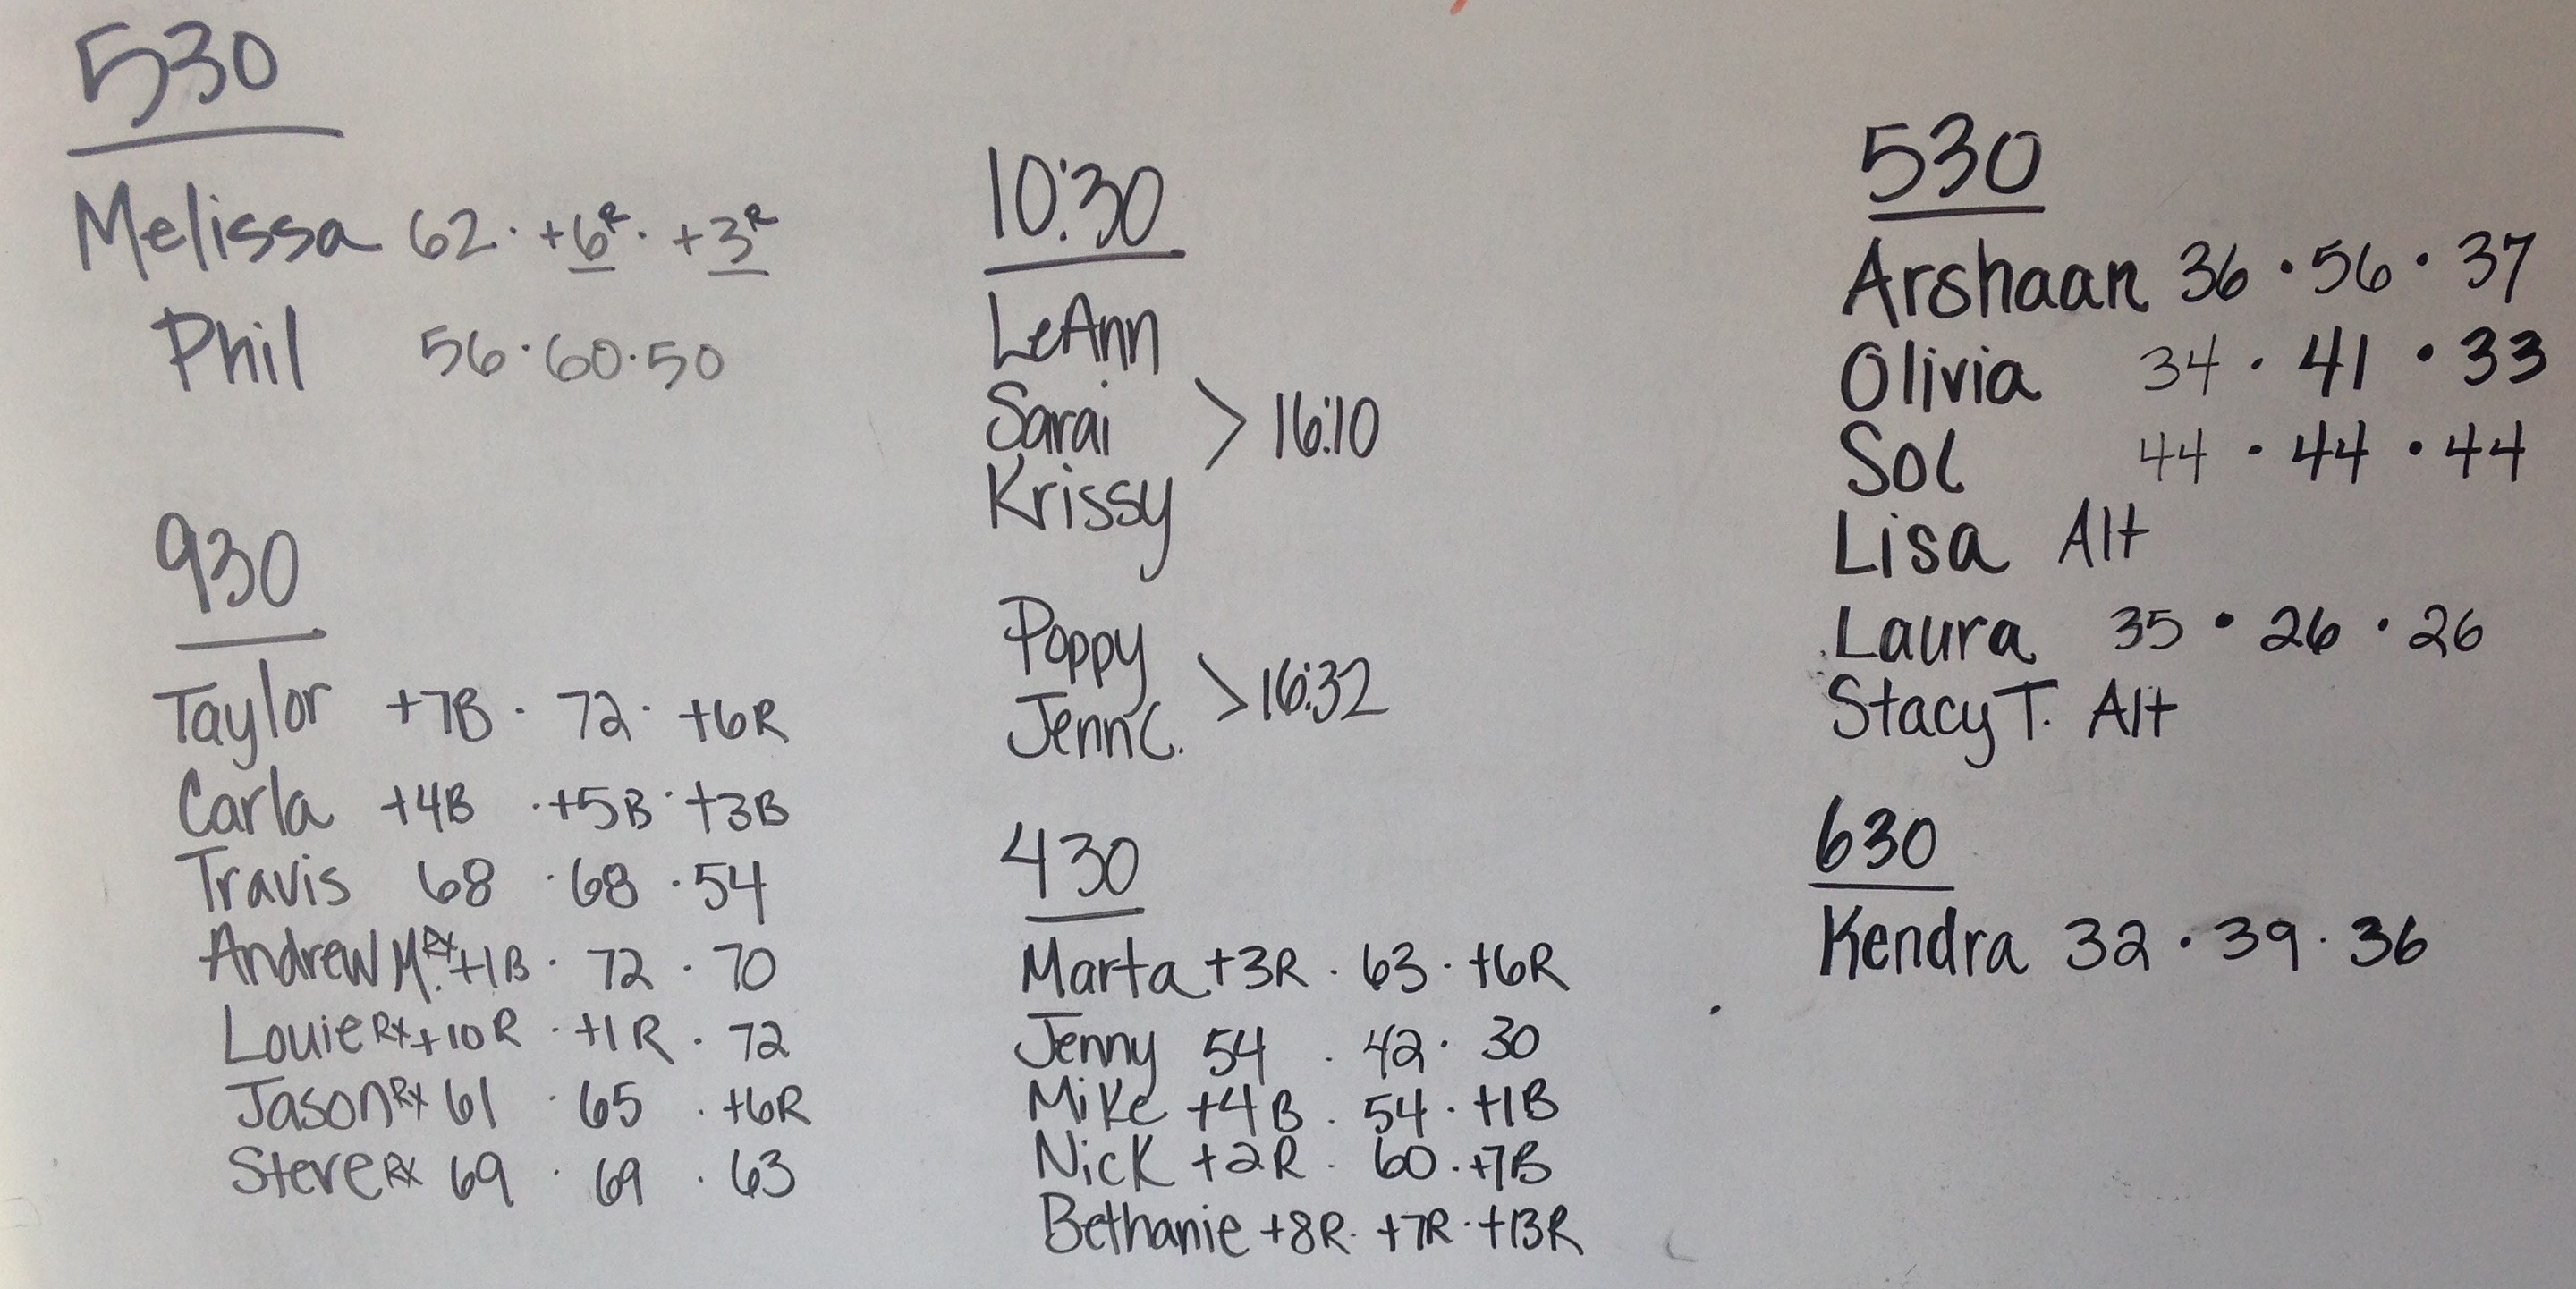 530
Melissa 62 · +6R · +3R
Phil 56 · 60 · 50
930
Taylor +7B · 72 · +6R
Carla +4B · +5B · +3B
Travis 68 · 68 · 54
Andrew M. Rx +1B · 72 · 70
Louie Rx +10R · +1R · 72
Jason Rx 61 · 65 · +6R
Steve Rx 69 · 69 · 63
10:30
LeAnn
Sarai > 16:10
Krissy
Poppy
Jenn C. > 16:32
430
Marta +3R · 63 · +6R
Jenny 54 · 42 · 30
Mike +4B · 54 · +1B
Nick +2R · 60 · +7B
Bethanie +8R · +7R · +13R
530
Arshaan 36 · 56 · 37
Olivia 34 · 41 · 33
Sol 44 · 44 · 44
Lisa Alt
Laura 35 · 26 · 26
Stacy T. Alt
630
Kendra 32 · 39 · 36